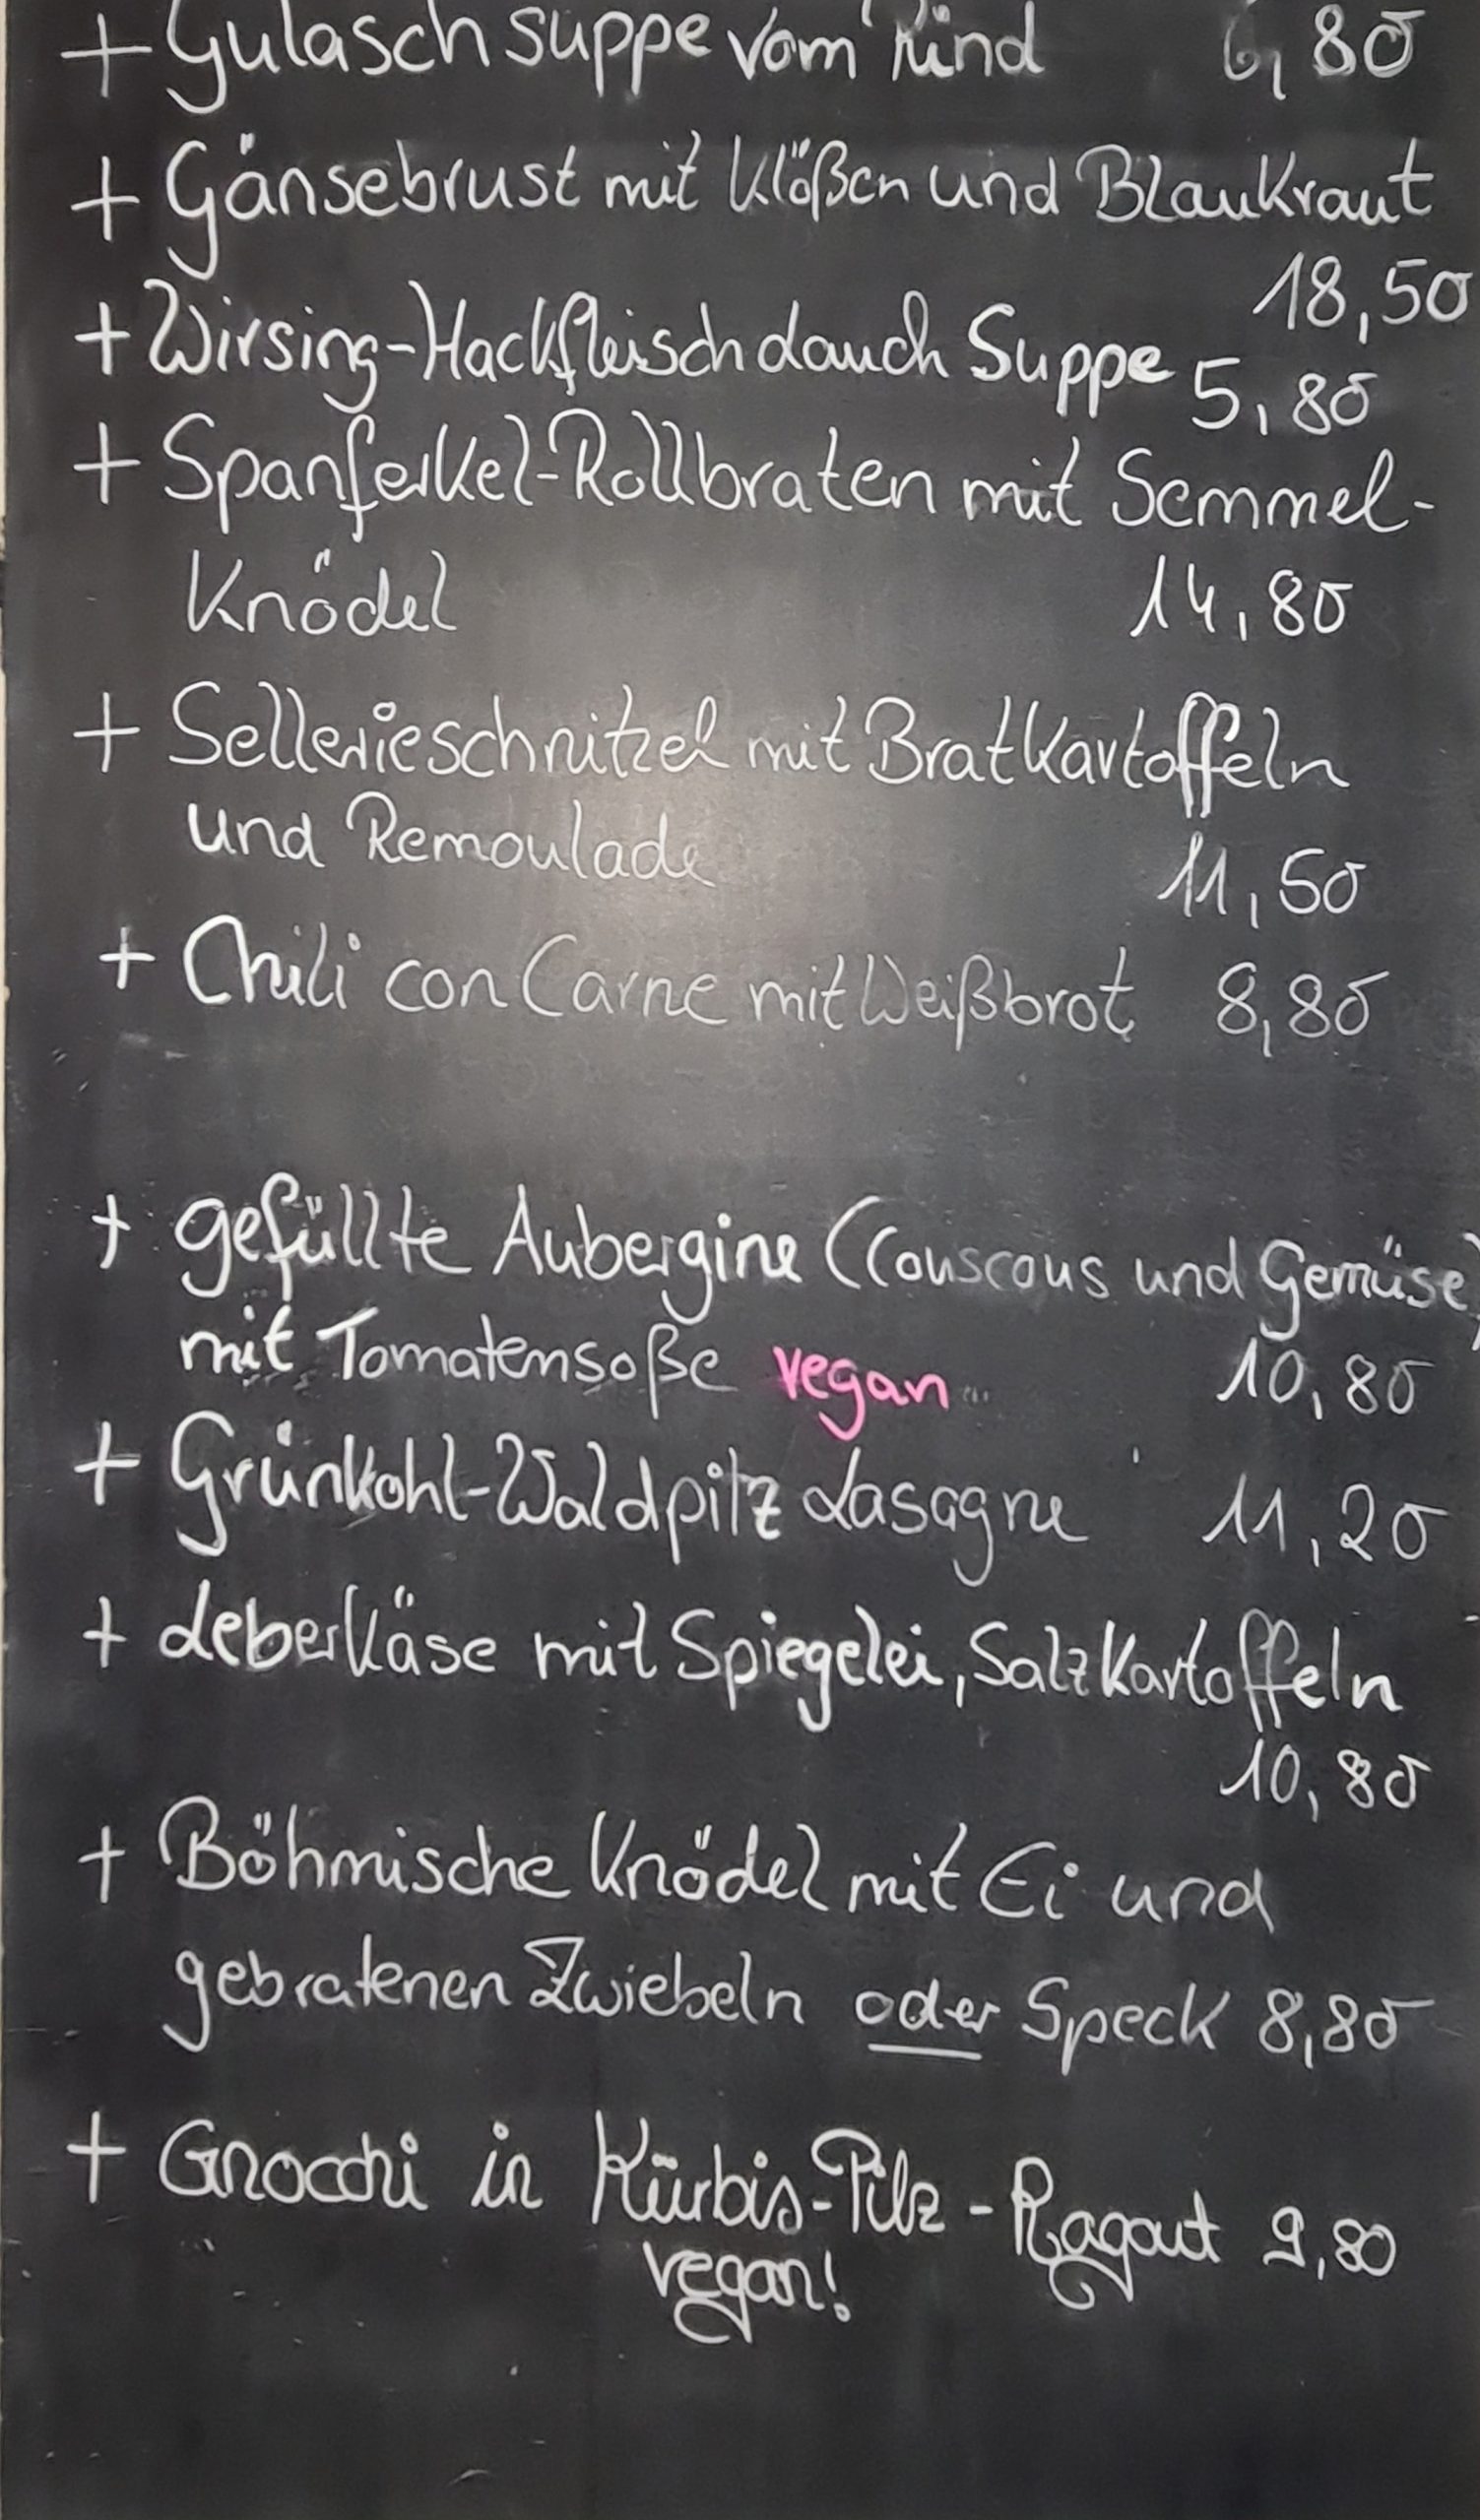 + Gulaschsuppe vom Rind 6,80
+ Gänsebrust mit Klößen und Blaukraut
18,50
+ Wirsing-Hackfleisch dauch Suppe 5,80
+ Spanferkel-Rollbraten mit Semmel-
Knödel 14,80
+ Sellerieschnitzel mit Bratkartoffeln
und Remoulade 11,50
+ Chili con Carne mit Weißbrot 8,80
+ gefüllte Aubergine (Couscous und Gemüse)
mit Tomatensoße vegan 10,80
+ Grünkohl-Waldpilz Lasagne 11,20
+ Leberkäse mit Spiegelei, Salzkartoffeln
10,80
+ Böhmische Knödel mit Ei und
gebratenen Zwiebeln oder Speck 8,80
+ Gnocchi in Kürbis-Pilz-Ragout 9,80
vegan!